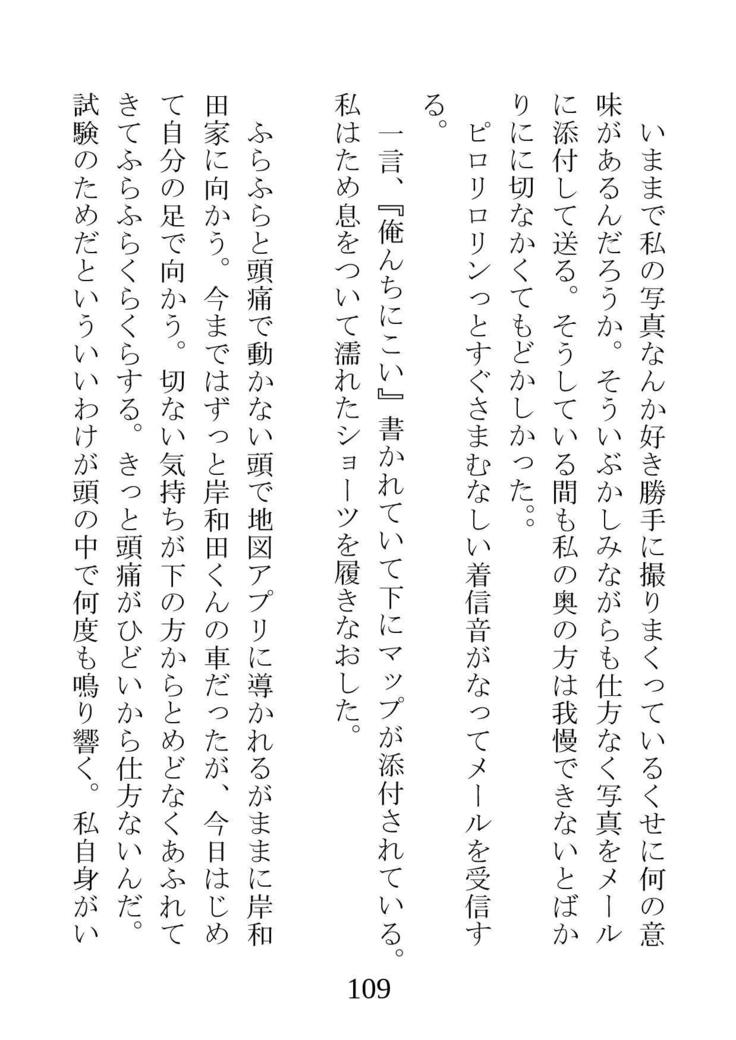 いままで私の写真なんか好き勝手に撮りまくっているくせに何の意
味があるんだろうか。そういぶかしみながらも仕方なく写真をメール
に添付して送る。そうしている間も私の奥の方は我慢できないとばか
りにに切なかくてもどかしかった。。
ピロリロリンっとすぐさまむなしい着信音がなってメールを受信す
る。
一言、『俺んちにこい』書かれていて下にマップが添付されている。
私はため息をついて濡れたショーツを履きなおした。
ふらふらと頭痛で動かない頭で地図アプリに導かれるがままに岸和
田家に向かう。今まではずっと岸和田くんの車だったが、今日はじめ
て自分の足で向かう。切ない気持ちが下の方からとめどなくあふれて
きてふらふらくらくらする。きっと頭痛がひどいから仕方ないんだ。
試験のためだといういいわけが頭の中で何度も鳴り響く。私自身がい
109